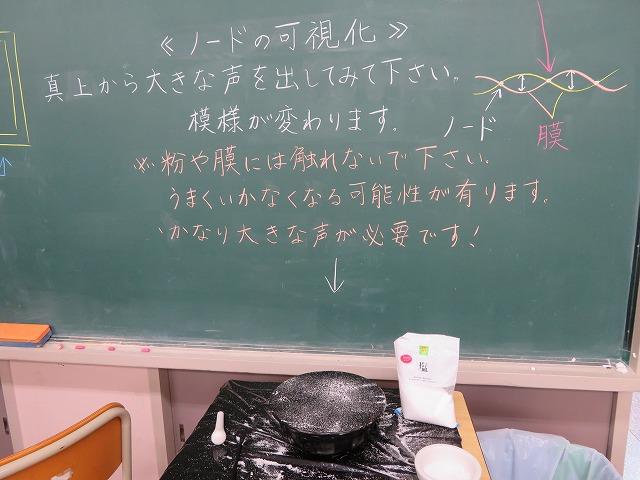 ≪ノードの可視化≫
真上から大きな声を出してみて下さい。
模様が変わります。
ノード
膜
※粉や膜には触れないで下さい。
うまくいかなくなる可能性が有ります。
・かなり大きな声が必要です!
↓
塩